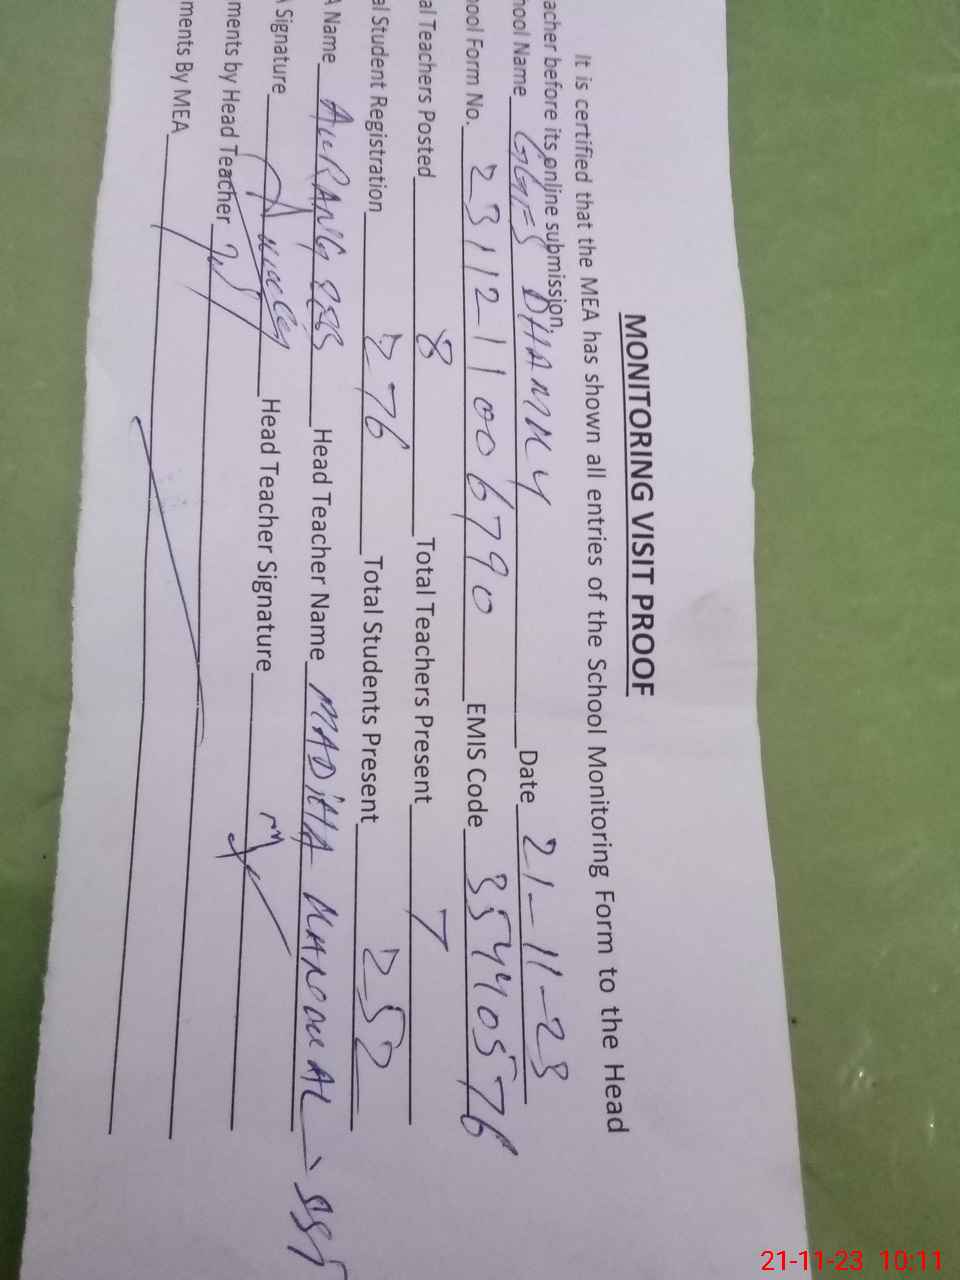 MONITORING VISIT PROOF
It is certified that the MEA has shown all entries of the School Monitoring Form to the Head
acher before its online submission.
hool Name GGES DHAMKY Date 21-11-23
ool Form No. 23112-11006790 EMIS Code 35440576
al Teachers Posted 8 Total Teachers Present 7
al Student Registration 276 Total Students Present 252
A Name AURANG ZEB Head Teacher Name MADIHA KANOWAL - SST
A Signature Head Teacher Signature
ments by Head Teacher
ments By MEA
21-11-23 10:11